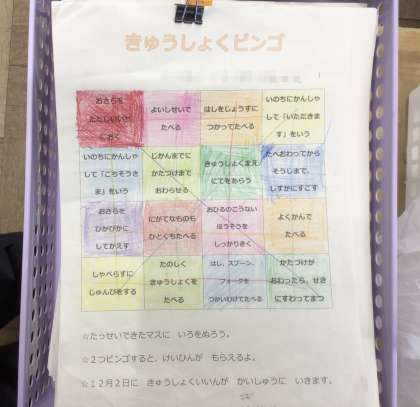 きゅうしょくビンゴ
おさらを
ただしいいちに
おく
よいしせいで
たべる
はしをじょうずに
つかってたべる
いのちにかんしゃ
して「いただきま
す」をいう
いのちにかんしゃ
して「ごちそうさ
ま」をいう
じかんまでに
かたづけまで
おわらせる
きゅうしょくまえ
にてをあらう
たべおわってから
そうじまで、
しずかにすごす
おさらを
ぴかぴかに
してかえす
にがてなものも
ひとくちたべる
おひるのこうない
ほうそうを
しっかりきく
よくかんで
たべる
しゃべらずに
じゅんびをする
たのしく
きゅうしょくを
たべる
はし、スプーン、
フォークを
つかいわけてたべる
かたづけが
おわったら、せき
にすわってまつ
☆たっせいできたマスに いろをぬろう。
☆2つビンゴすると、けいひんが もらえるよ。
☆12月2日に きゅうしょくいいんが かいしゅうに いきます。